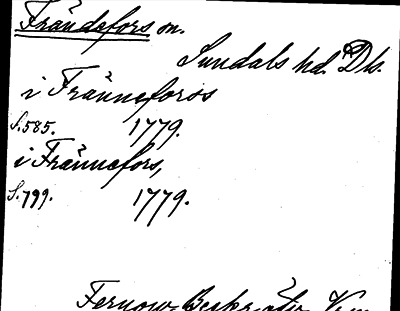 Frändefors sn.
Sundals hd. Dls.
i Fränneforss
S. 585. 1779.
i Frännefors,
S. 799. 1779.
Fernow Beskr. öfv. Verm